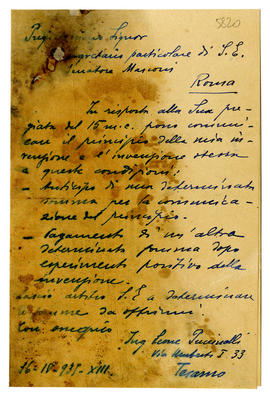 5820
Preg.mo Signor
Segretario particolare di S. E.
Senatore Marconi
Roma
In risposta alla Sua pre-
giata del 15 m.c. posso comuni-
care il principio della mia in-
venzione e l'invenzione stessa
a queste condizioni:
- Anticipo di una determinata
somma per la comunica-
zione del principio.
- Pagamento di un'altra
determinata somma dopo
esperimenti positivi della
invenzione.
S. E. a determinare
le somme da offrirmi.
Con ossequio
Ing. Leone
Via Umberto I 33
Teramo
16-IV-935-XIII.